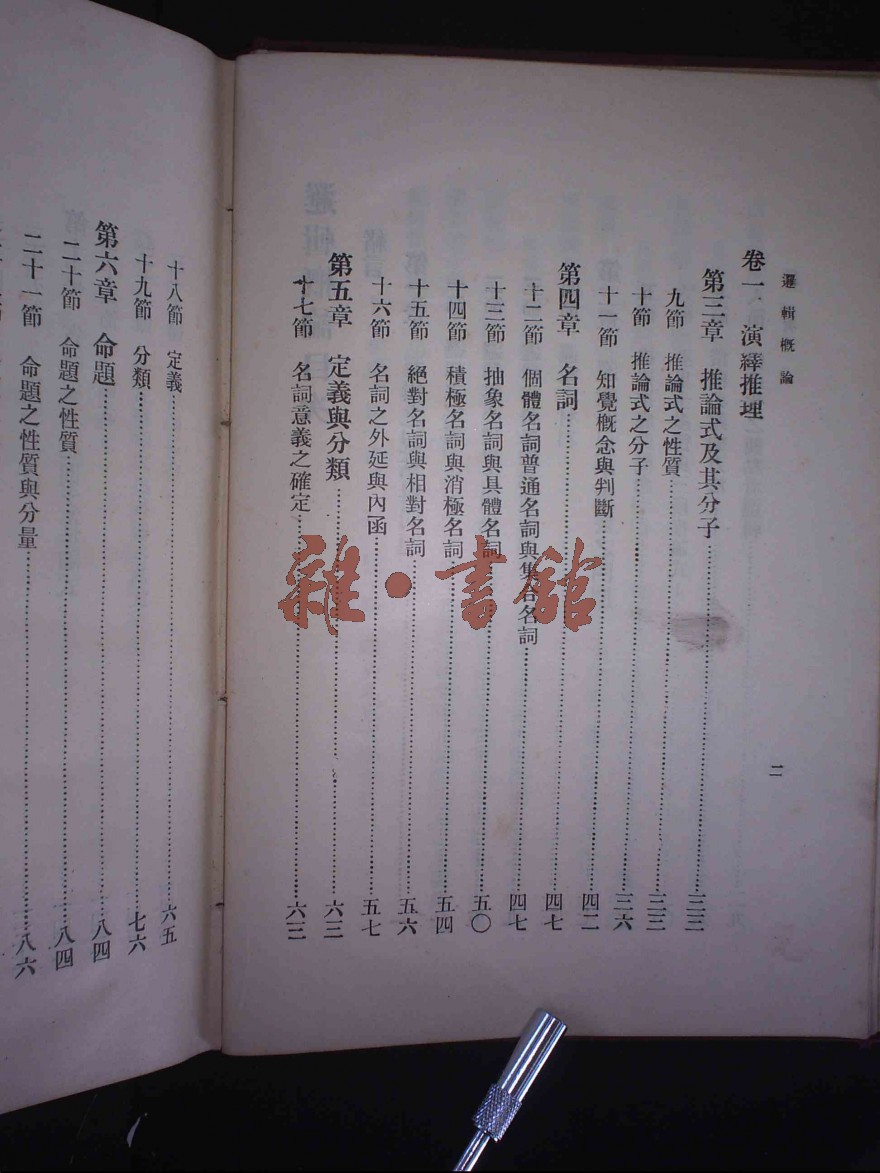 邏輯概論
二
卷一、演繹推理
第三章 推論式及其分子 三三
九節 推論式之性質 三三
十節 推論式之分子 三六
十一節 知覺概念與判斷 四二
第四章 名詞 四七
十二節 個體名詞普通名詞與集合名詞 四七
十三節 抽象名詞與具體名詞 五〇
十四節 積極名詞與消極名詞 五四
十五節 絕對名詞與相對名詞 五六
十六節 名詞之外延與內函 五七
第五章 定義與分類 六三
十七節 名詞意義之確定 六三
十八節 定義 六五
十九節 分類 七六
第六章 命題 八四
二十節 命題之性質 八四
二十一節 命題之性質與分量 八六
雜·書館